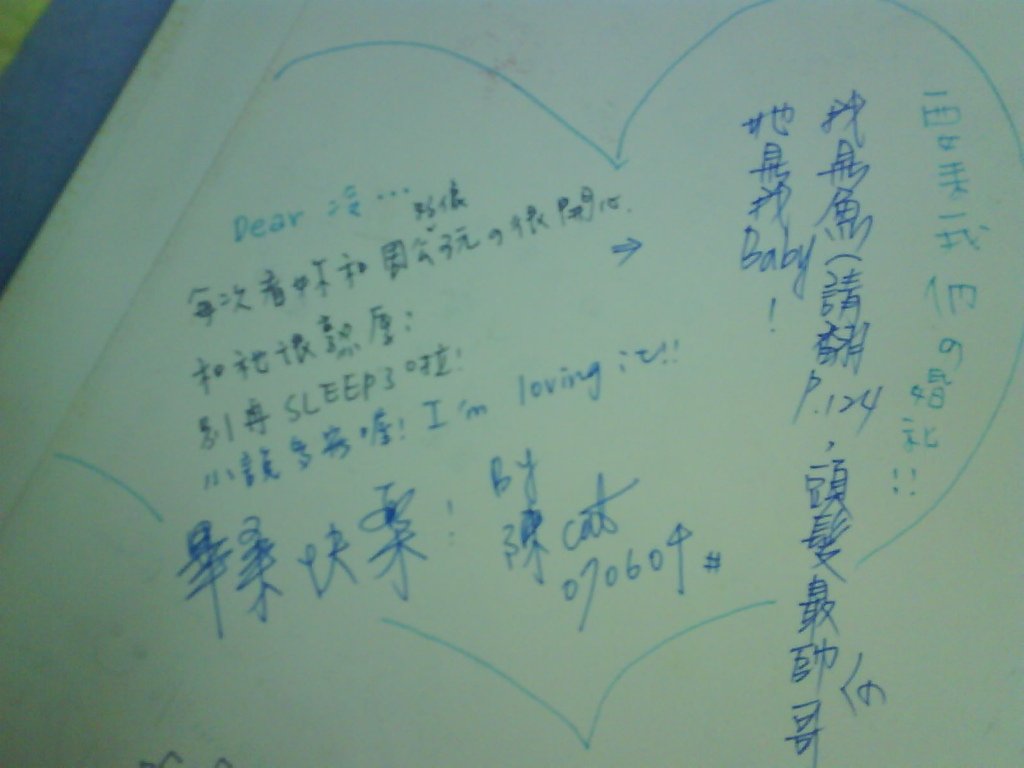 Dear 凌...
每次看妳和周公玩の很開心
好像
和祂很熟厚:
別再SLEEP3啦!
小說多寄喔! I'm loving it!!
畢業快樂! By
陳cat
070604#
→
要來我們の婚礼!!
我是魚(請翻P.124,頭髮最帥の哥
她是我Baby!